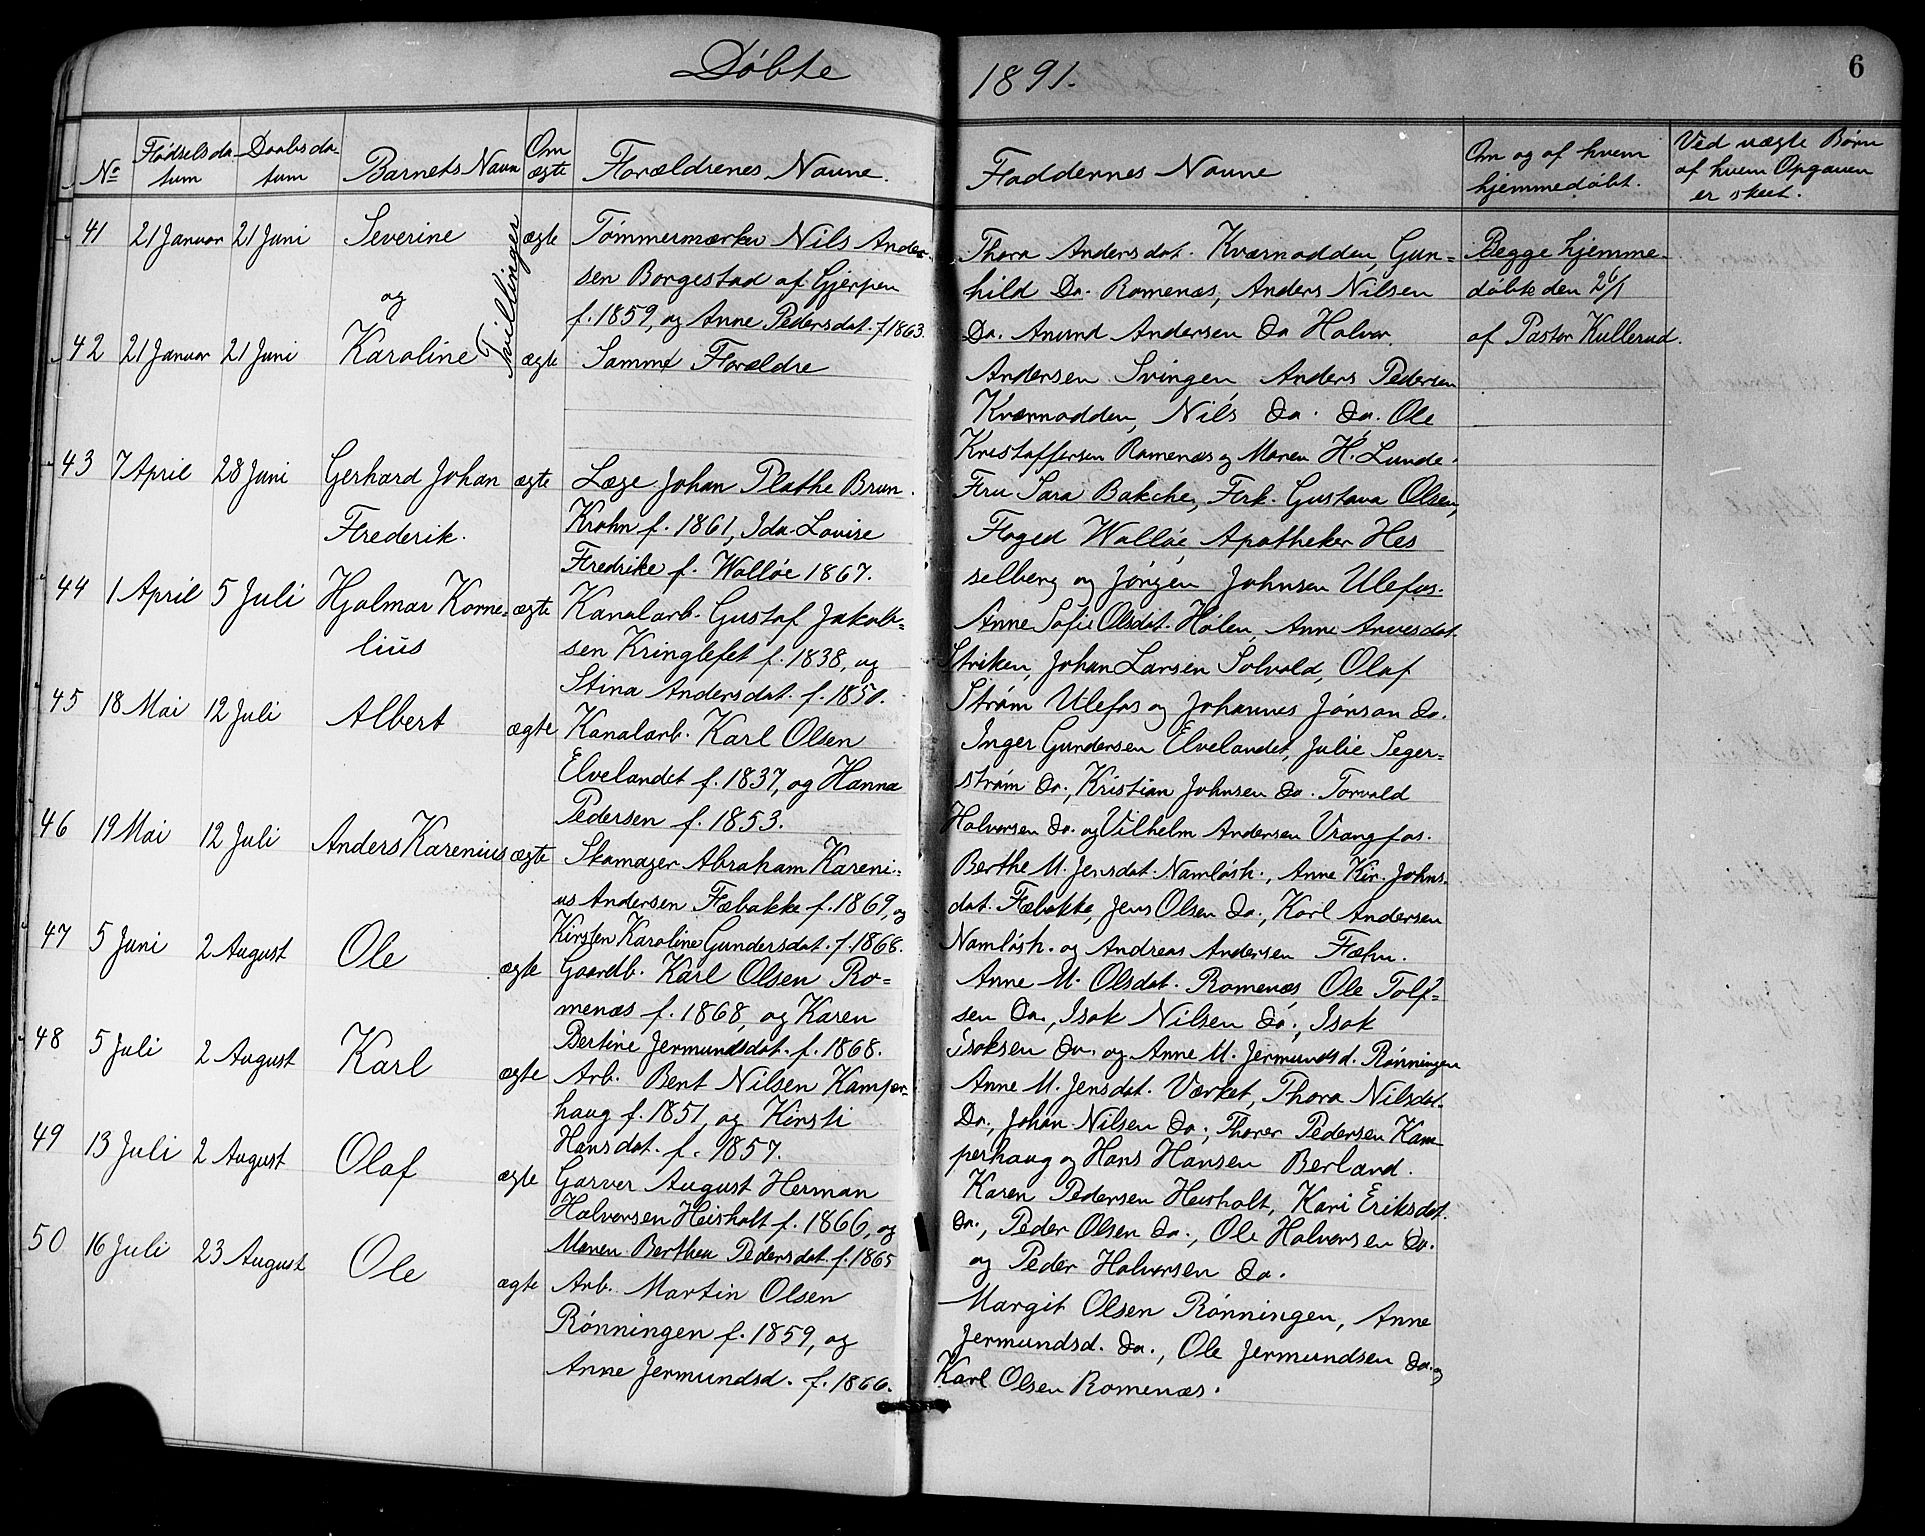 Døbte 1891. 6
No Fødselsda- Daabsda- Barnets Navn Om Forældrenes Navne. Faddernes Navne Om og af hvem Ved uægte Børn
tum tum ægte hjemmedøbt. af hvem Opgaven
er skeet.
41 21 Januar 21 Juni Severine ægte Tømmermærker Nils Ander-
sen Borgestad af Gjerpen
f. 1859, og Anne Pedersdat. f 1863.
og
Tvillinger
42 21 Januar 21 Juni Karoline ægte Samme Forældre
Thora Andersdat. Kværnodden, Gun-
hild Do. Romenæs, Anders Nilsen
Do. Anund Andersen Do Halvor
Andersen Svingen, Anders Pedersen
Kværnodden, Nils Do. Do. Ole
Kristoffersen Romenæs og Maren H. Lunde.
Begge hjemme-
døbte den 26/1
af Pastor Kullerud.
43 7 April 28 Juni Gerhard Johan ægte
Frederik.
Læge Johan Plathe Brun
Krohn f. 1861, Ida Lovise
Fredrike f. Walløe 1867.
Fru Sara Bakche, Frk. Gustava Olsen,
Foged Walløe, Apotheker Hes
selberg og Jørgen Johnsen Ulefos.
44 1 April 5 Juli Hjalmar Korne- ægte
lius
Kanalarb. Gustaf Jakob-
sen Kringlefet f. 1838, og
Stina Andersdat. f. 1850.
Anne Sofie Olsdat. Holen, Anne Anersdat.
Striken, Johan Larsen Solvold, Olaf
Strøm Ulefos og Johannes Jonson Do.
45 18 Mai 12 Juli Albert ægte
Kanalarb. Karl Olsen
Elvelandet f. 1837, og Hanna
Pedersen f. 1853.
Inger Gundersen Elvelandet, Julie Seger-
strøm Do., Kristian Johnsen Do. Torvald
Halvorsen Do. og Vilhelm Andersen Vrangfos.
46 19 Mai 12 Juli Anders Karenius ægte
Skomager Abraham Kareni-
us Andersen Fæbakke f. 1869, og
Kirsten Karoline Gundersdat. f. 1868.
Berthe M. Jensdat. Namløsh., Anne Kir. Johns-
dat. Fæbakke, Jens Olsen Do., Karl Andersen
Namløsh. og Andreas Andersen Fæhn.
47 5 Juni 2 August Ole ægte
Gaardb. Karl Olsen Ro-
menæs f. 1868, og Karen
Bertine Jermundsdat. f. 1868.
Anne M. Olsdat. Romenæs Ole Tolf-
sen Do., Isak Nilsen Do., Isak
Isaksen Do. og Anne M. Jermundsd. Rønningen
48 5 Juli 2 August Karl ægte
Arb. Bent Nilsen Kamper-
haug f. 1851, og Kirsti
Hansdat. f. 1857.
Anne M. Jensdat. Værket, Thora Nilsdat.
Do., Johan Nilsen Do., Thorer Pedersen Kam-
perhaug og Hans Hansen Berland.
49 13 Juli 2 August Olaf ægte
Garver August Herman
Halvorsen Heisholt f. 1866, og
Maren Berthea Pedersdat. f. 1865
Karen Pedersen Heisholt, Kari Eriksdat.
Do., Peder Olsen Do., Ole Halvorsen Do.
og Peder Halvorsen Do.
50 16 Juli 23 August Ole ægte
Arb. Martin Olsen
Rønningen f. 1859, og
Anne Jermundsd. f. 1866.
Margit Olsen Rønningen, Anne
Jermundsd. Do., Ole Jermundsen Do. og
Karl Olsen Romenæs.